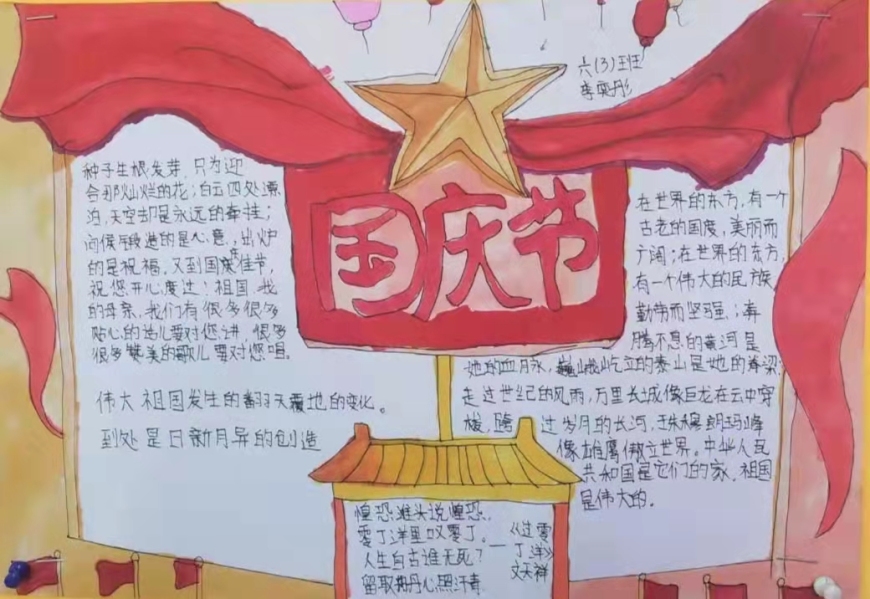 六(3)班
李奕彤
国庆节
种子生根发芽,只为迎
合那灿烂的花;白云四处漂
泊,天空却是永远的牵挂;
问候锻造的是心意,出炉
的是祝福。又到国庆佳节,
祝您开心度过!祖国,我
的母亲,我们有很多很多
贴心的话儿要对您讲,很多
很多赞美的歌儿要对您唱。
伟大祖国发生的翻天覆地的变化。
到处是日新月异的创造
在世界的东方,有一个
古老的国度,美丽而
广阔;在世界的东方,
有一个伟大的民族,
勤劳而坚强;奔
腾不息的黄河是
她的血脉,巍峨屹立的泰山是她的脊梁;
走过世纪的风雨,万里长城像巨龙在云中穿
梭,腾过岁月的长河,珠穆朗玛峰
像雄鹰傲立世界。中华人民
共和国是它们的家,祖国
是伟大的。
惶恐滩头说惶恐,
零丁洋里叹零丁。
人生自古谁无死?
留取丹心照汗青
—《过零
丁洋》
文天祥